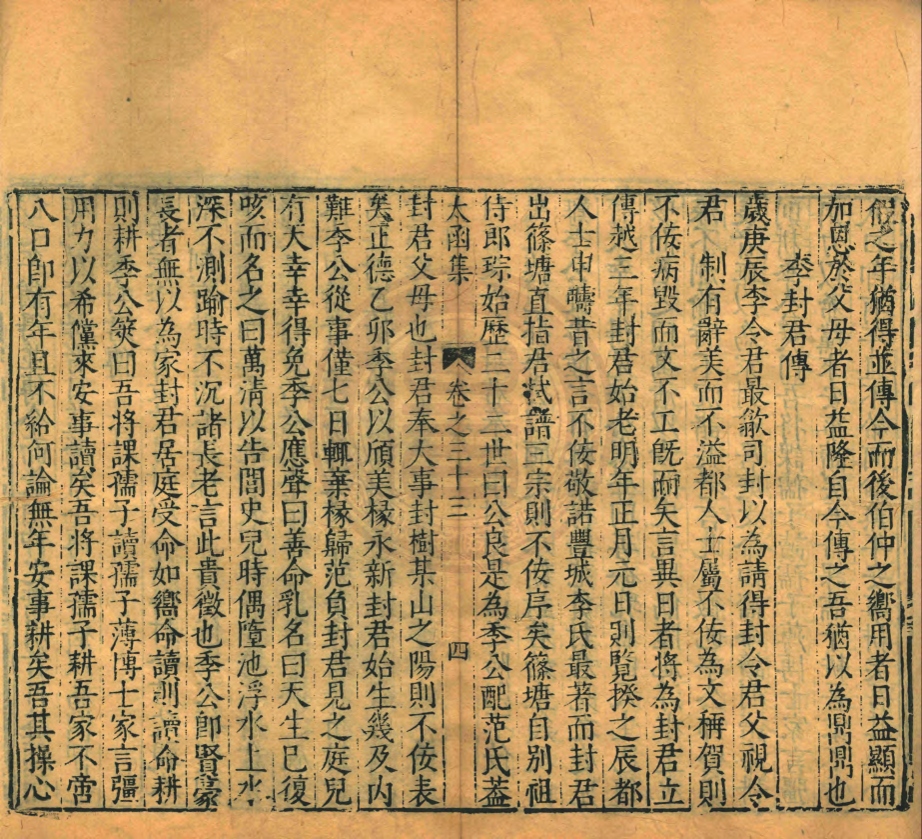 假之年猶得並傳今而後伯仲之嚮用者日益顯而
加恩於父母者日益隆自今傳之吾猶以為鼎鼎也
李封君傳
歲庚辰李令君最歙司封以為請得封令君父視令
君 制有辭美而不溢都人士屬不佞為文稱賀則
不佞病毀而文不工旣耐矣言異日者將為封君立
傳越三年封君始老明年正月元日則覽揆之辰都
人士申疇昔之言不佞敬諾豐城李氏最著而封君
出篠塘直指君栻譜三宗則不佞序矣篠塘自别祖
侍郎琮始歷二十二世曰公良是為季公配范氏葢
太函集 卷之三十三 四
封君父母也封君奉大事封樹某山之陽則不佞表
矣正德乙卯季公以頎美椽永新封君始生幾及内
難季公從事僅七日輒棄椽歸范負封君見之庭兒
有天幸幸得免季公應聲曰善命乳名曰天生已復
咳而名之曰萬淸以告閭史兒時偶墮池浮水上水
深不測踰時不沉諸長老言此貴徵也季公卽賢豪
長者無以為家封君居庭受命如嚮命讀則讀命耕
則耕季公笑曰吾將課孺子讀孺子薄博士家言彊
用力以希儻來安事讀矣吾將課孺子耕吾家不啻
八口卽有年且不給何論無年安事耕矣吾其操心